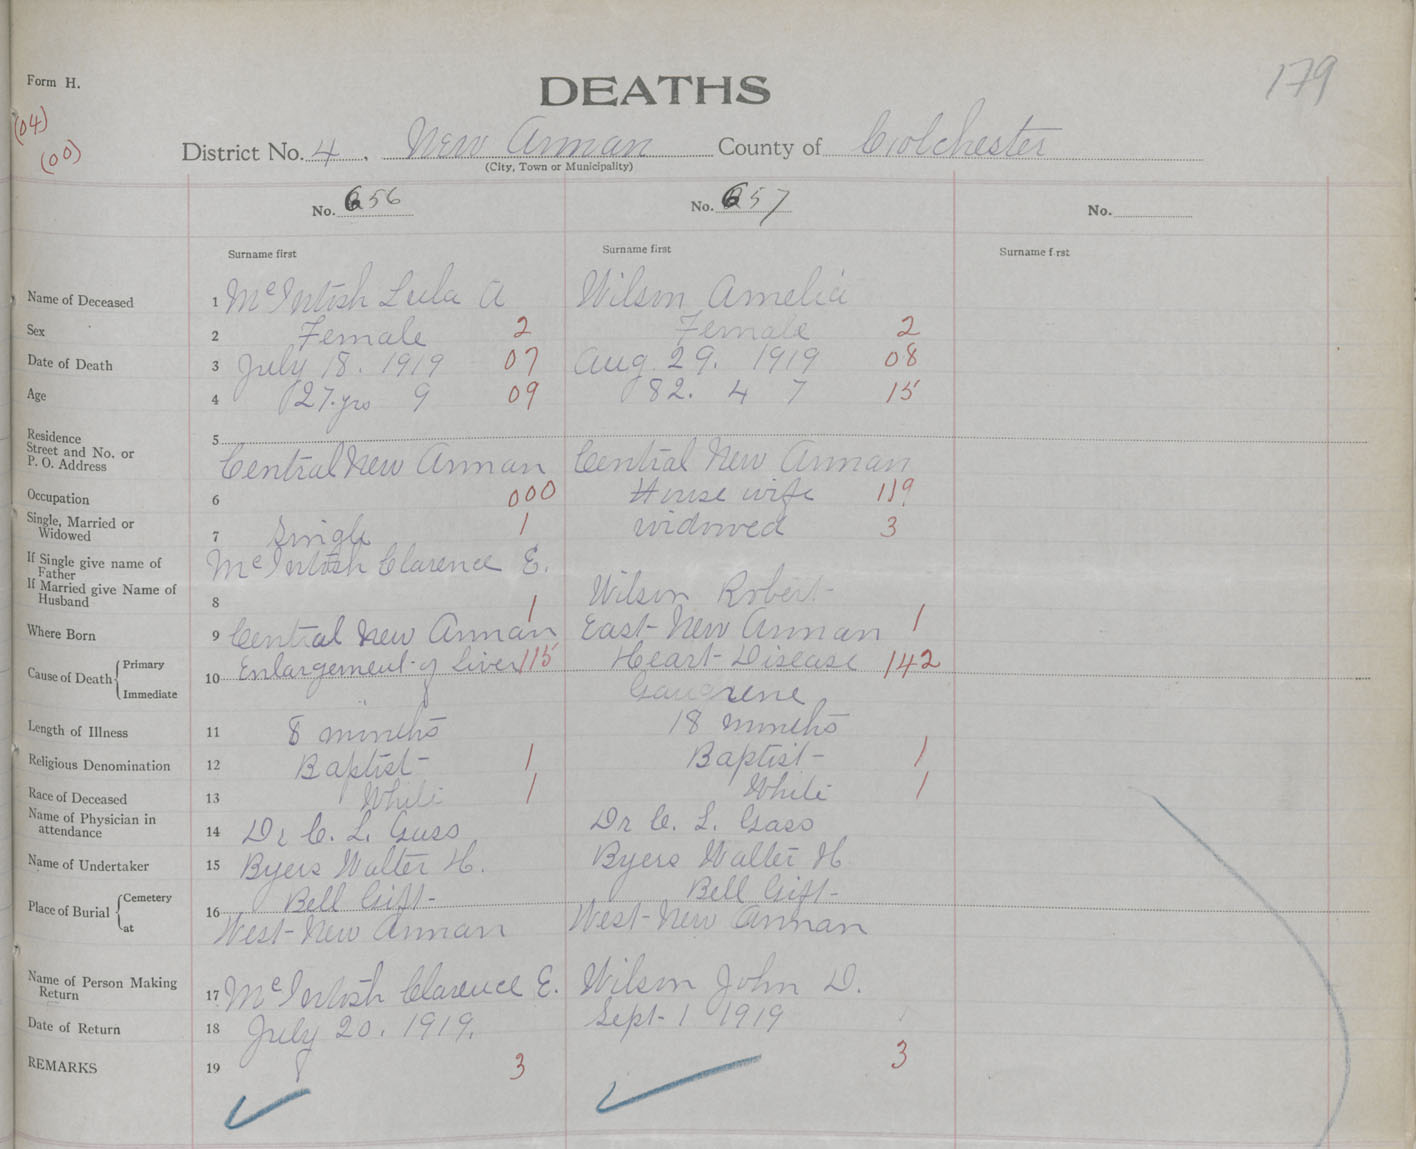 Form H.
DEATHS
179
(04)
(00)
District No. 4, New Annan County of Colchester
(City, Town or Municipality)
No. 656 No. 657 No.
Surname first Surname first Surname first
Name of Deceased 1 McIntosh Lula A Wilson Amelia
Sex 2 Female 2 Female 2
Date of Death 3 July 18. 1919 07 Aug. 29. 1919 08
Age 4 27. yrs 9 09 82. 4 7 15
Residence
Street and No. or
P. O. Address
5 Central New Annan Central New Annan
Occupation 6 000 House wife 119
Single, Married or
Widowed 7 Single 1 widowed 3
If Single give name of
Father McIntosh Clarence E.
If Married give Name of
Husband 8 1 Wilson Robert
Where Born 9 Central New Annan East New Annan 1
Cause of Death Primary 10 Enlargement of liver 115 Heart Disease 142
Immediate Gangrene
Length of Illness 11 8 months 18 months
Religious Denomination 12 Baptist 1 Baptist 1
Race of Deceased 13 White 1 White 1
Name of Physician in
attendance 14 Dr C. L. Gass Dr C. L. Gass
Name of Undertaker 15 Byers Walter H. Byers Walter H
Place of Burial Cemetery 16 Bell Gift Bell Gift
at West New Annan West New Annan
Name of Person Making
Return 17 McIntosh Clarence E. Wilson John D.
Date of Return 18 July 20. 1919. Sept 1 1919
REMARKS 19 3 3